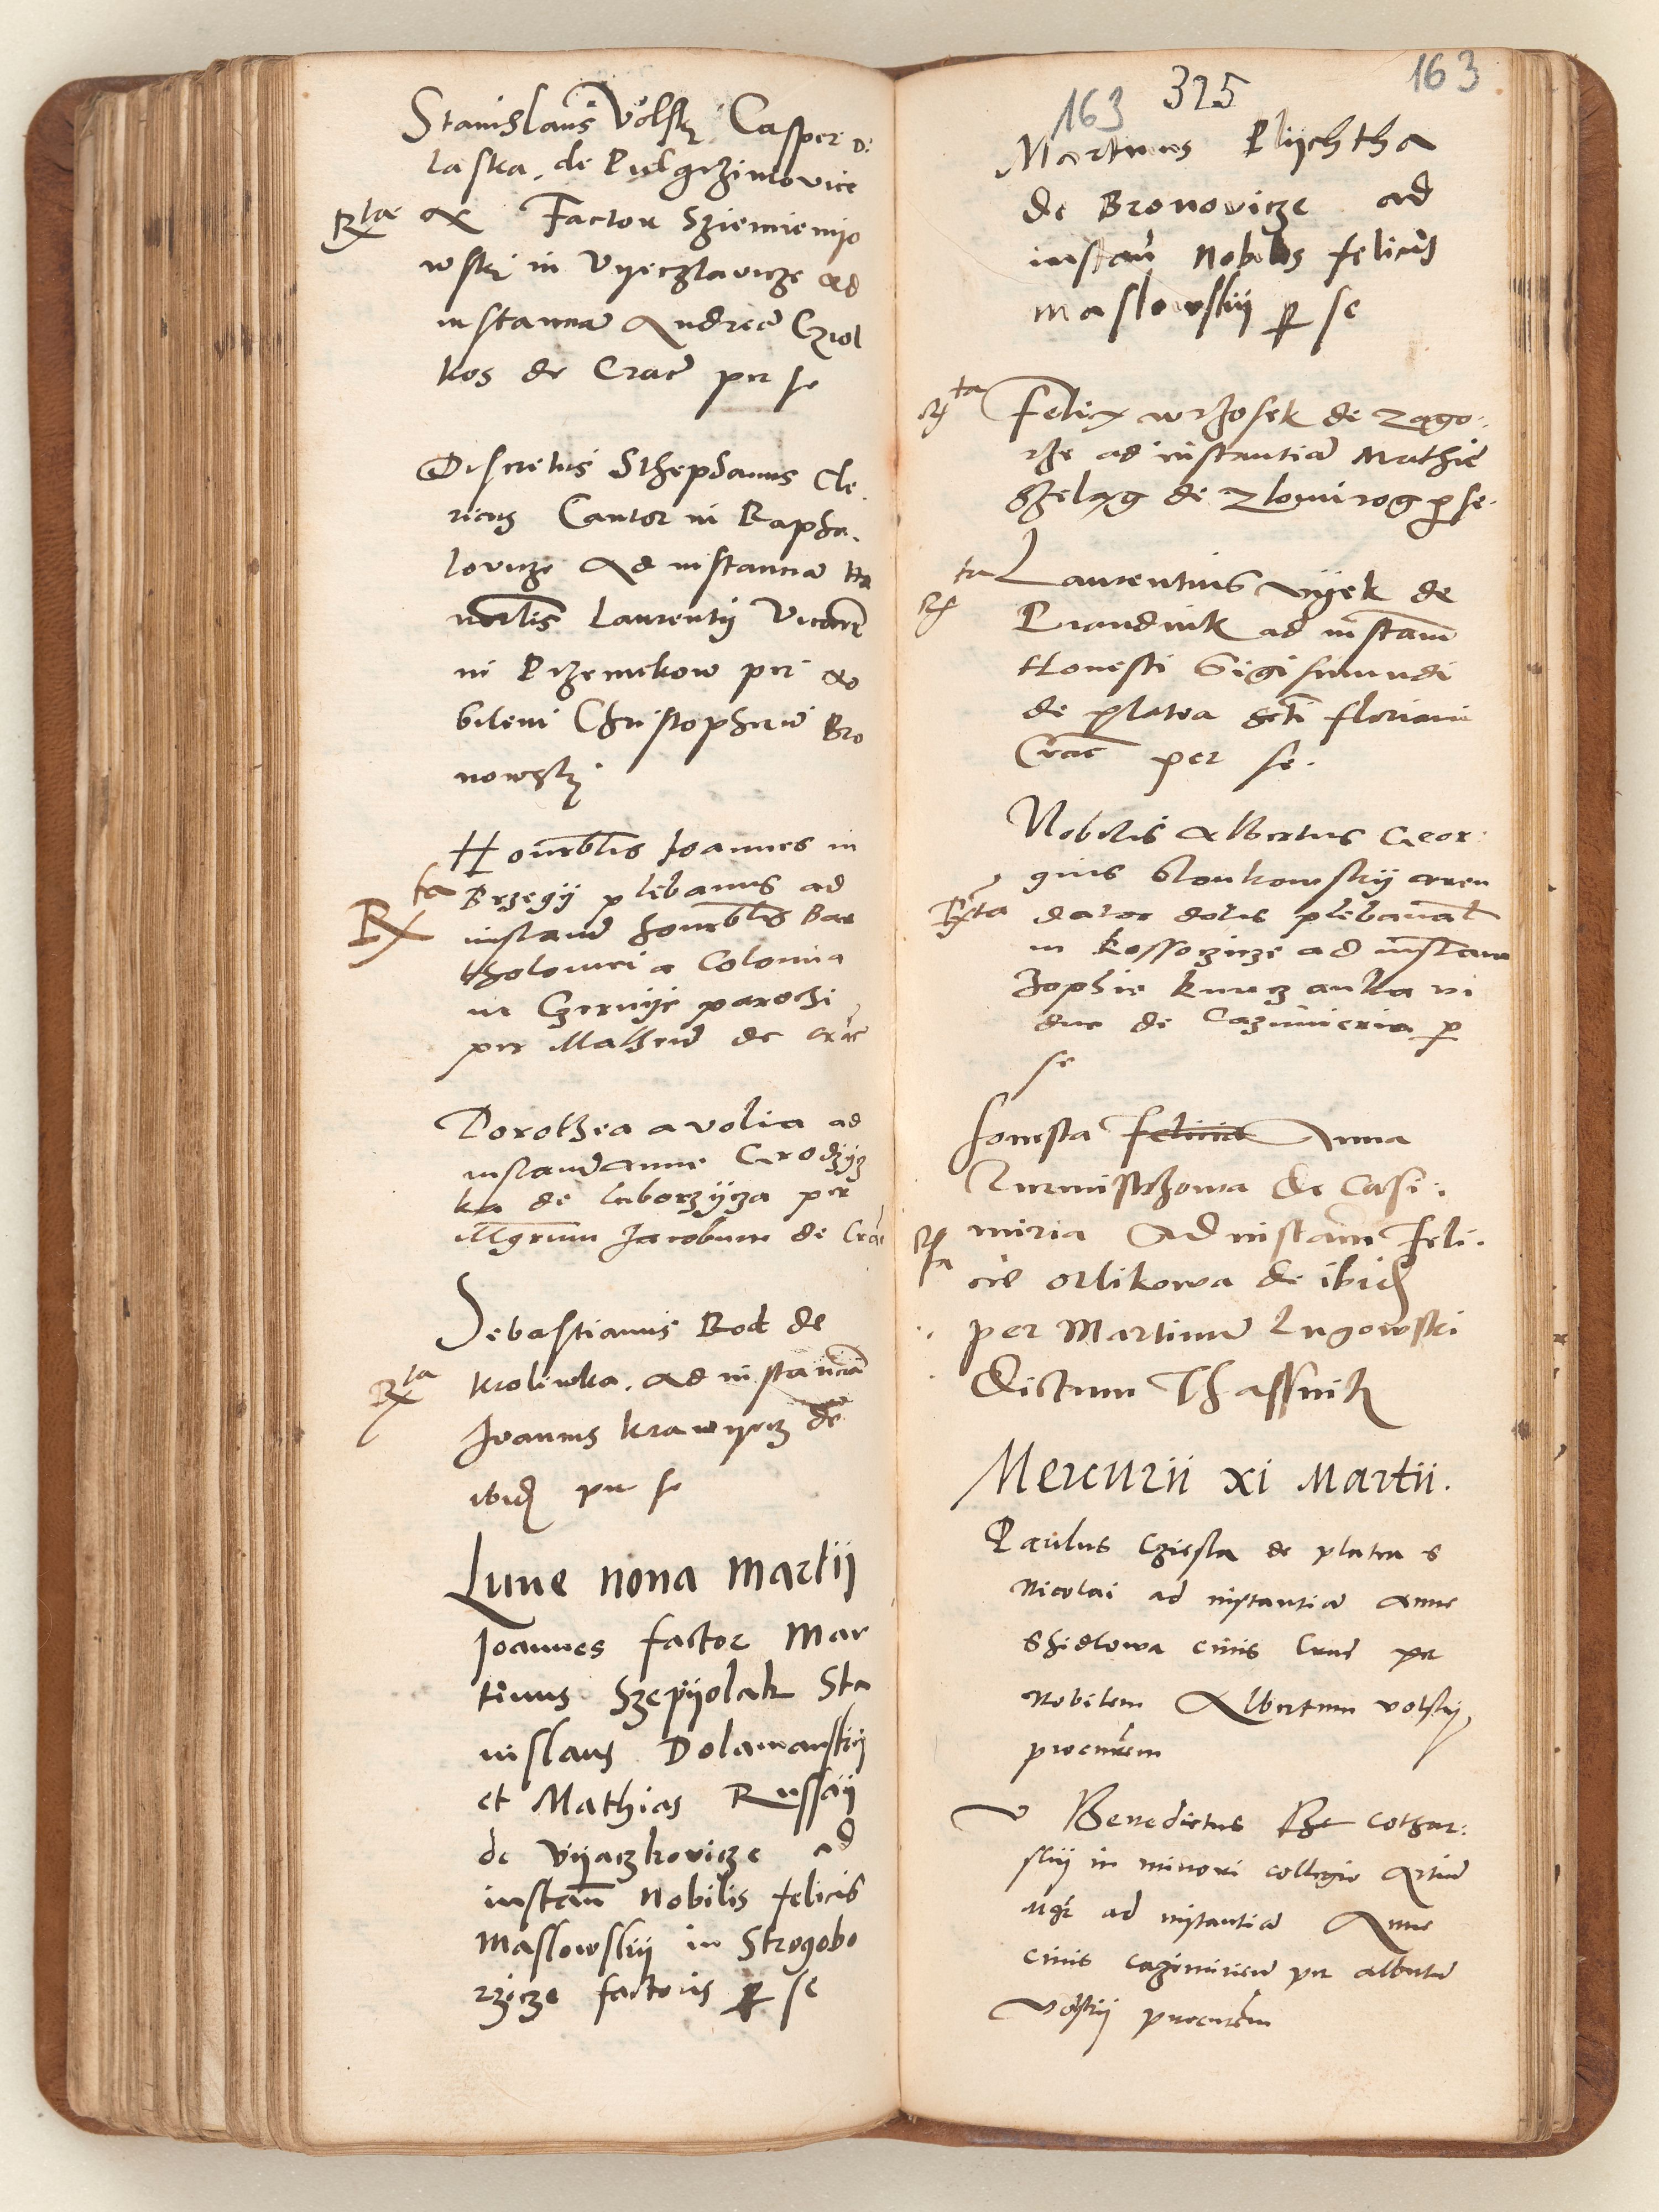 Stanislaus Volsky Casper D:
laska. de Pielgrzimovice
Rta & Factor Sziemienijo
wski in Vyeczlavicze ad
instantiã Andreæ Cziol
kos de Cracˉ per se
Discretus Sthephanus Cle.
ricus Cantor in Rapha.
lovicze Ad instantiã Ho
norblis Laurentij Vicarij
in Przemekow per No
bilem Christopherũ Bro
nowsky
Honorblis Joannes in
Rta Brzegij plebanus ad
instanciã honorblis Bar
tholomei a Colonia
in Czernije parochi
per Matheũ de Crac
Dorothea a volia ad
instanciã Anne Grodzÿcz
ka de luborzÿcza per
Mgrum Jacobum de Crac
Sebastianus Rod de
Rta Kroliwka. Ad instanciã
Joannis Krawijecz de
ibid per se
Lune nona Martij
Joannes factor Mar
tinus Szepijolak Sta
nislaus Dolawanskij
et Mathias Russaij
de Vijaczkovicze ad
instaũ Nobilis felicis
Maslowskij in Strogobo
rzicze factoris p se
163 325 163
Martinus Plijchtha
de Bronovicze ad
instaũ Nobilis felicis
Maslowskij p se
Rta Felix wrzosek de Zago.
rze ad instantiã Mathie
Szeląg de Zlomirog p se.
Rta Laurentius vijek de
Prandnik ad instam
Honesti Sigismundi
de platea Scti floriani
Crac per se.
Nobilis Albertus Geor
gius Slonkowskij arren
Rta dator dotis plebanal
in Kossczicze ad instam
Zophie Kunczanka vi
due de Cazimieria p
se
honesta Felicia Anna
Zurmistrzowa de Casi:
Rta miria Ad instam Feli.
cie Orlikowa de ibid
per Martinũ Lugowski
dictum Thassnik
Mercurii xi Martii.
Paulus Cziesla de platea S
Nicolai ad instantiã Anne
Shidlowa civis Crac per
Nobilem Albertum volskij
procurem
V Benedictus Cothar:
skij in minori collegio Artiũ
Mgr ad instantiã Anne
civis cazimirieñ per Albertũ
Volskij procurem